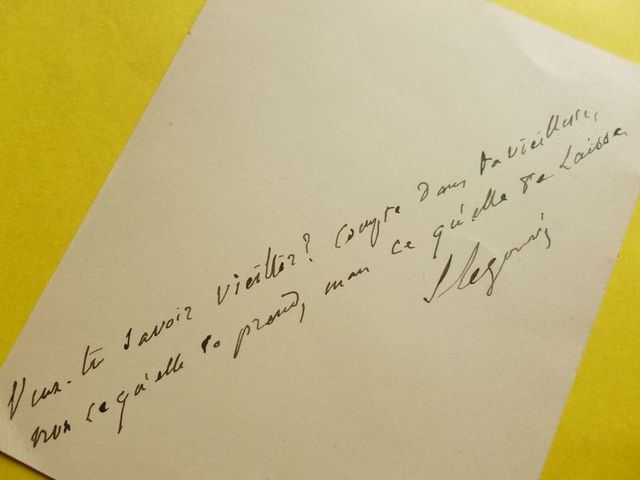 Veux-tu savoir vieillir? Compte dans ta vieillesse,
non ce qu'elle te prend, mais ce qu'elle te laisse.
E Legouvé